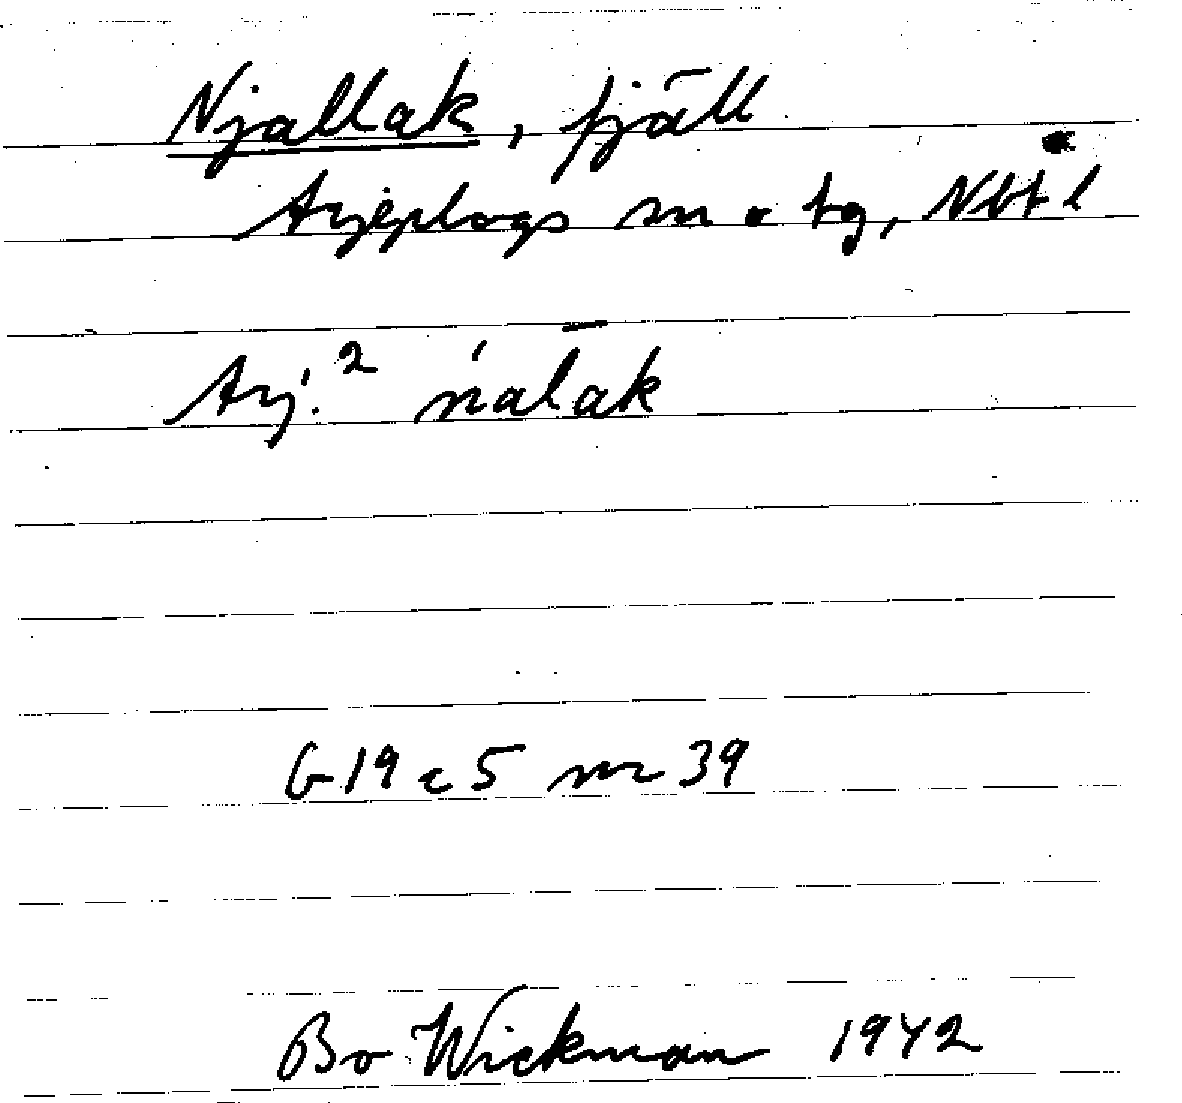 Njallak, fjäll
Arjeplogs sn o tg, Nbt l
Arj.² ńal̄ak
G 19 c 5 nr 39
Bo Wickman 1942